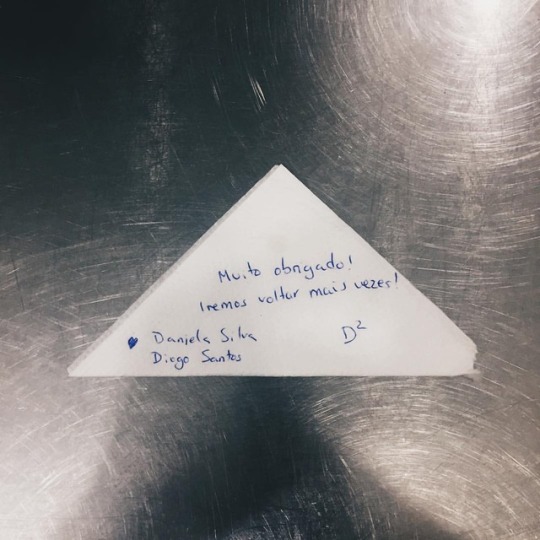 Muito obrigado!
Iremos voltar mais vezes!
Daniela Silva
Diogo Santos
D²